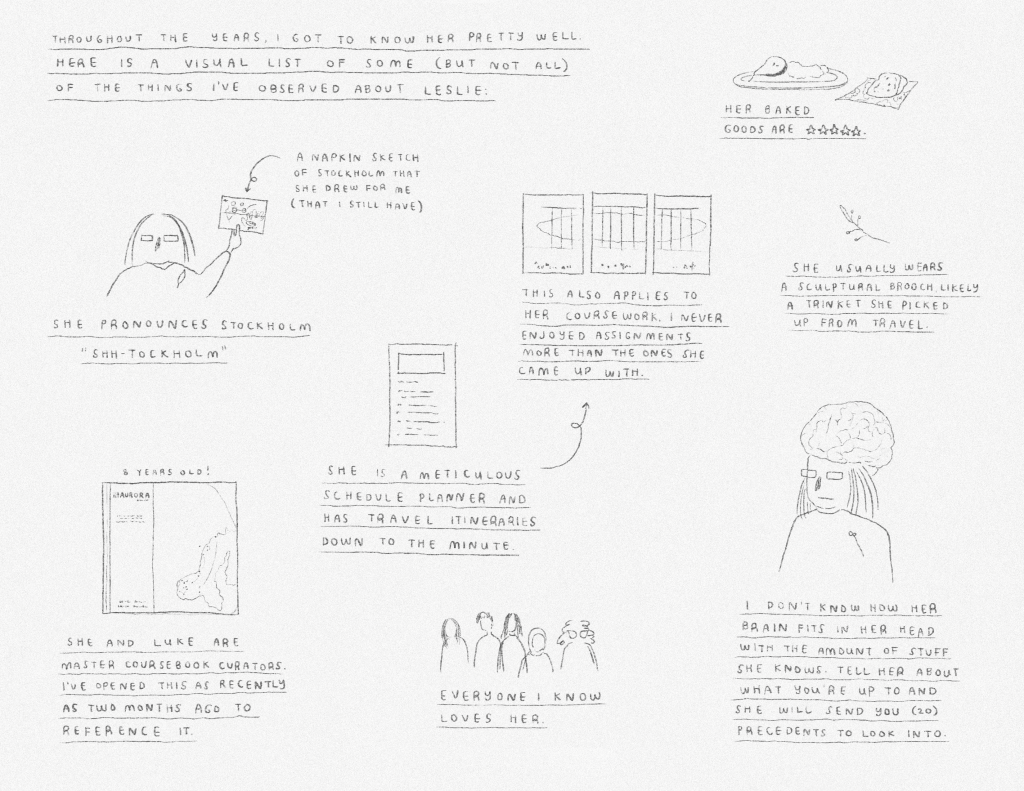 THROUGHOUT THE YEARS, I GOT TO KNOW HER PRETTY WELL.
HERE IS A VISUAL LIST OF SOME (BUT NOT ALL)
OF THE THINGS I'VE OBSERVED ABOUT LESLIE:
HER BAKED
GOODS ARE ☆☆☆☆☆.
A NAPKIN SKETCH
OF STOCKHOLM THAT
SHE DREW FOR ME
(THAT I STILL HAVE)
SHE PRONOUNCES STOCKHOLM
"SHH-TOCKHOLM"
THIS ALSO APPLIES TO
HER COURSEWORK. I NEVER
ENJOYED ASSIGNMENTS
MORE THAN THE ONES SHE
CAME UP WITH.
SHE USUALLY WEARS
A SCULPTURAL BROOCH, LIKELY
A TRINKET SHE PICKED
UP FROM TRAVEL.
SHE IS A METICULOUS
SCHEDULE PLANNER AND
HAS TRAVEL ITINERARIES
DOWN TO THE MINUTE.
8 YEARS OLD!
AURORA
SHE AND LUKE ARE
MASTER COURSEBOOK CURATORS.
I'VE OPENED THIS AS RECENTLY
AS TWO MONTHS AGO TO
REFERENCE IT.
EVERYONE I KNOW
LOVES HER.
I DON'T KNOW HOW HER
BRAIN FITS IN HER HEAD
WITH THE AMOUNT OF STUFF
SHE KNOWS. TELL HER ABOUT
WHAT YOU'RE UP TO AND
SHE WILL SEND YOU (20)
PRECEDENTS TO LOOK INTO.